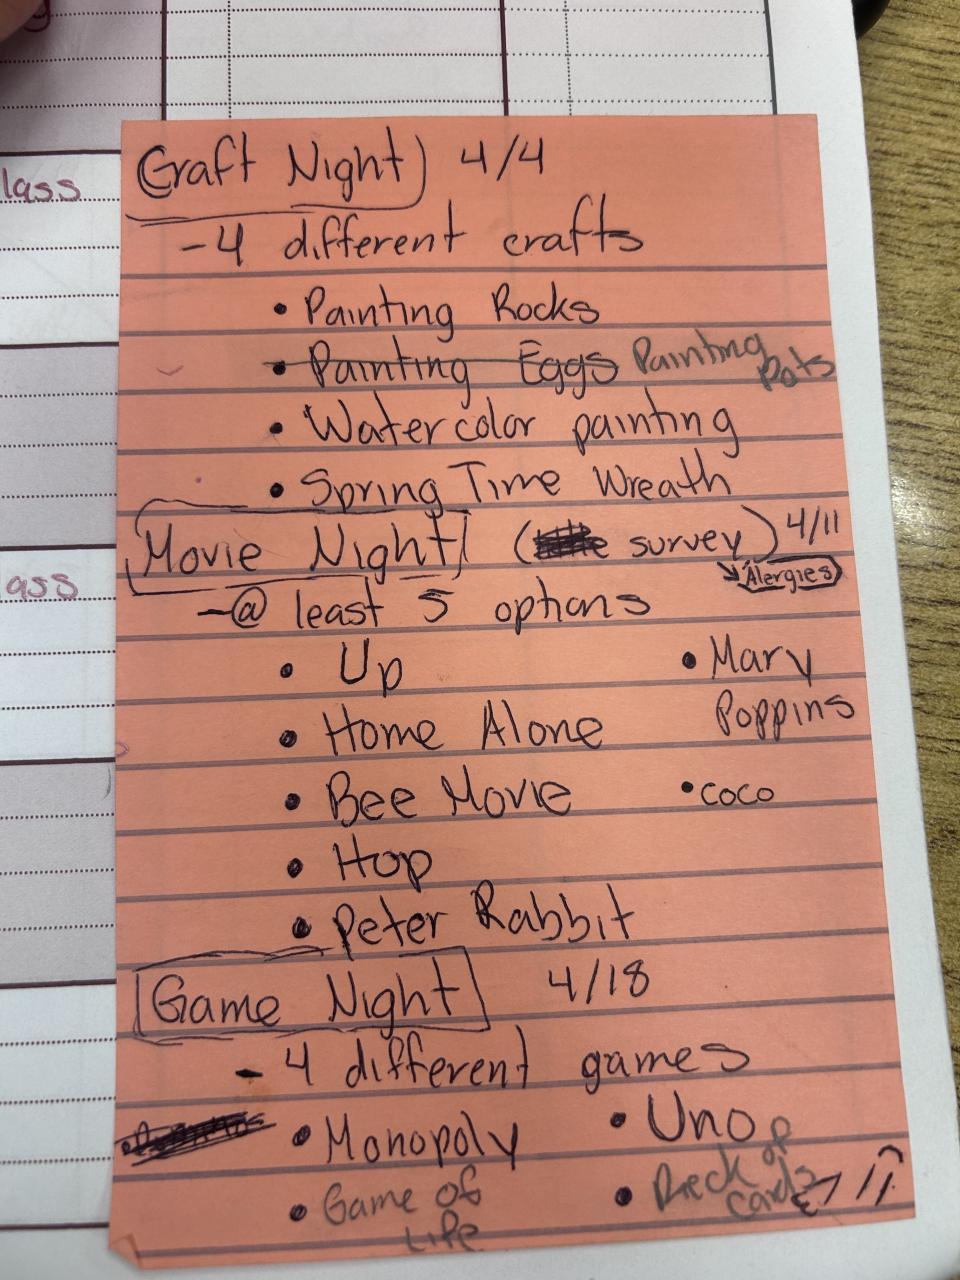 lass
ass
Craft Night 4/4
- 4 different crafts
• Painting Rocks
• Painting Eggs Painting Pots
• Watercolor painting
• Spring Time Wreath
Movie Night ( survey) 4/11
Alergies
- @ least 5 options
• Up
• Home Alone
• Bee Movie
• Hop
• Peter Rabbit
• Mary
Poppins
• coco
Game Night 4/18
- 4 different games
• Monopoly • Uno
• Game of
Life
• Deck of
Cards